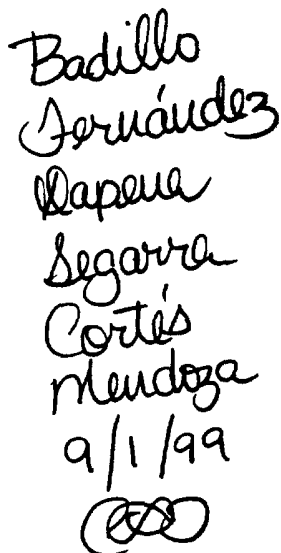 Badillo
Fernández
Dapena
Segarra
Cortés
Mendoza
9/1/99